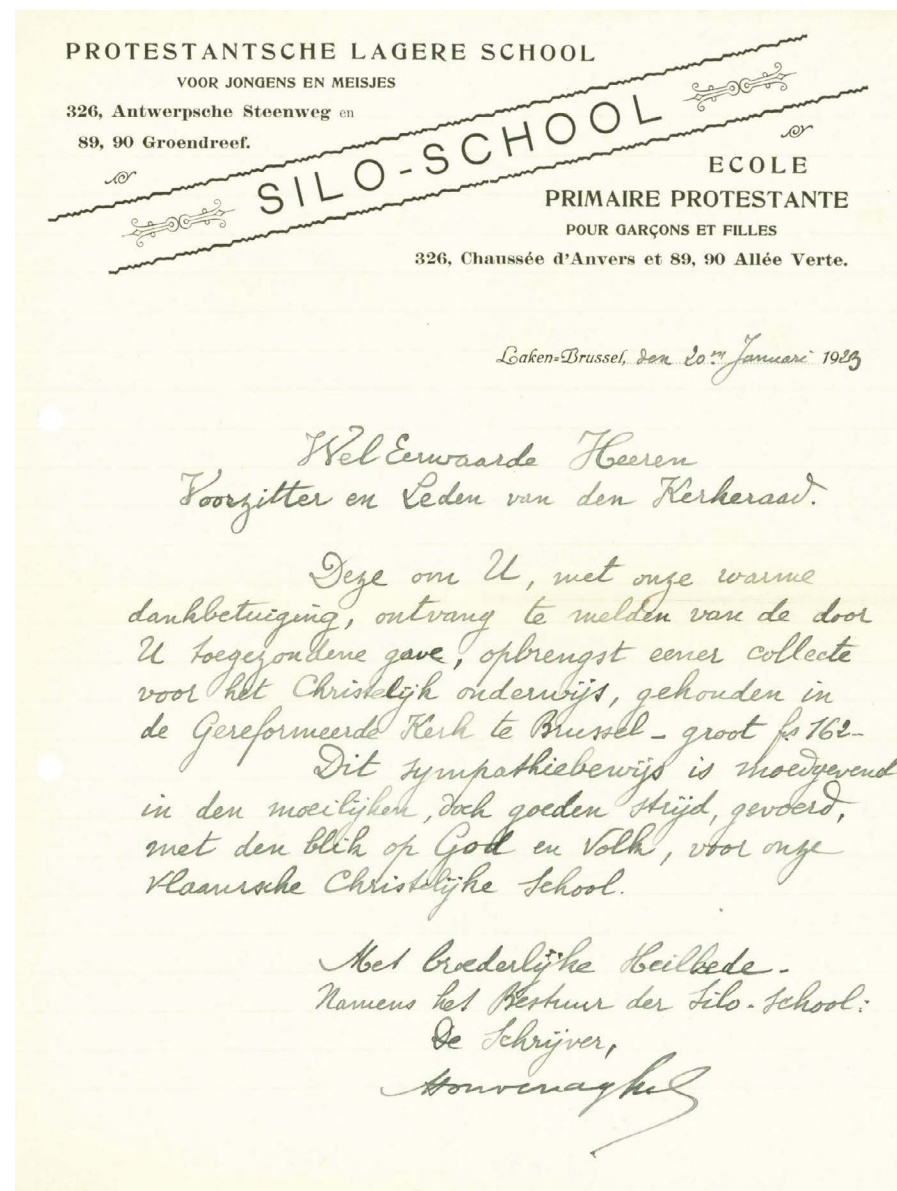 PROTESTANTSCHE LAGERE SCHOOL
VOOR JONGENS EN MEISJES
326, Antwerpsche Steenweg en
89, 90 Groendreef.
SILO-SCHOOL
ECOLE
PRIMAIRE PROTESTANTE
POUR GARÇONS ET FILLES
326, Chaussée d'Anvers et 89, 90 Allée Verte.
Laken=Brussel, den 20en Januari 1923
Wel Eerwaarde Heeren
Voorzitter en Leden van den Kerkeraad.
Deze om U, met onze warme
dankbetuiging, ontvang te melden van de door
U toegezondene gave, opbrengst eener collecte
voor het Christelijk onderwijs, gehouden in
de Gereformeerde Kerk te Brussel - groot fs 162-
Dit sympathiebewijs is moedgevend
in den moeilijken, doch goeden strijd, gevoerd,
met den blik op God en Volk, voor onze
Vlaamsche Christelijke School.
Met broederlijke Heilbede -
Namens het Bestuur der Silo-School:
De Schrijver,